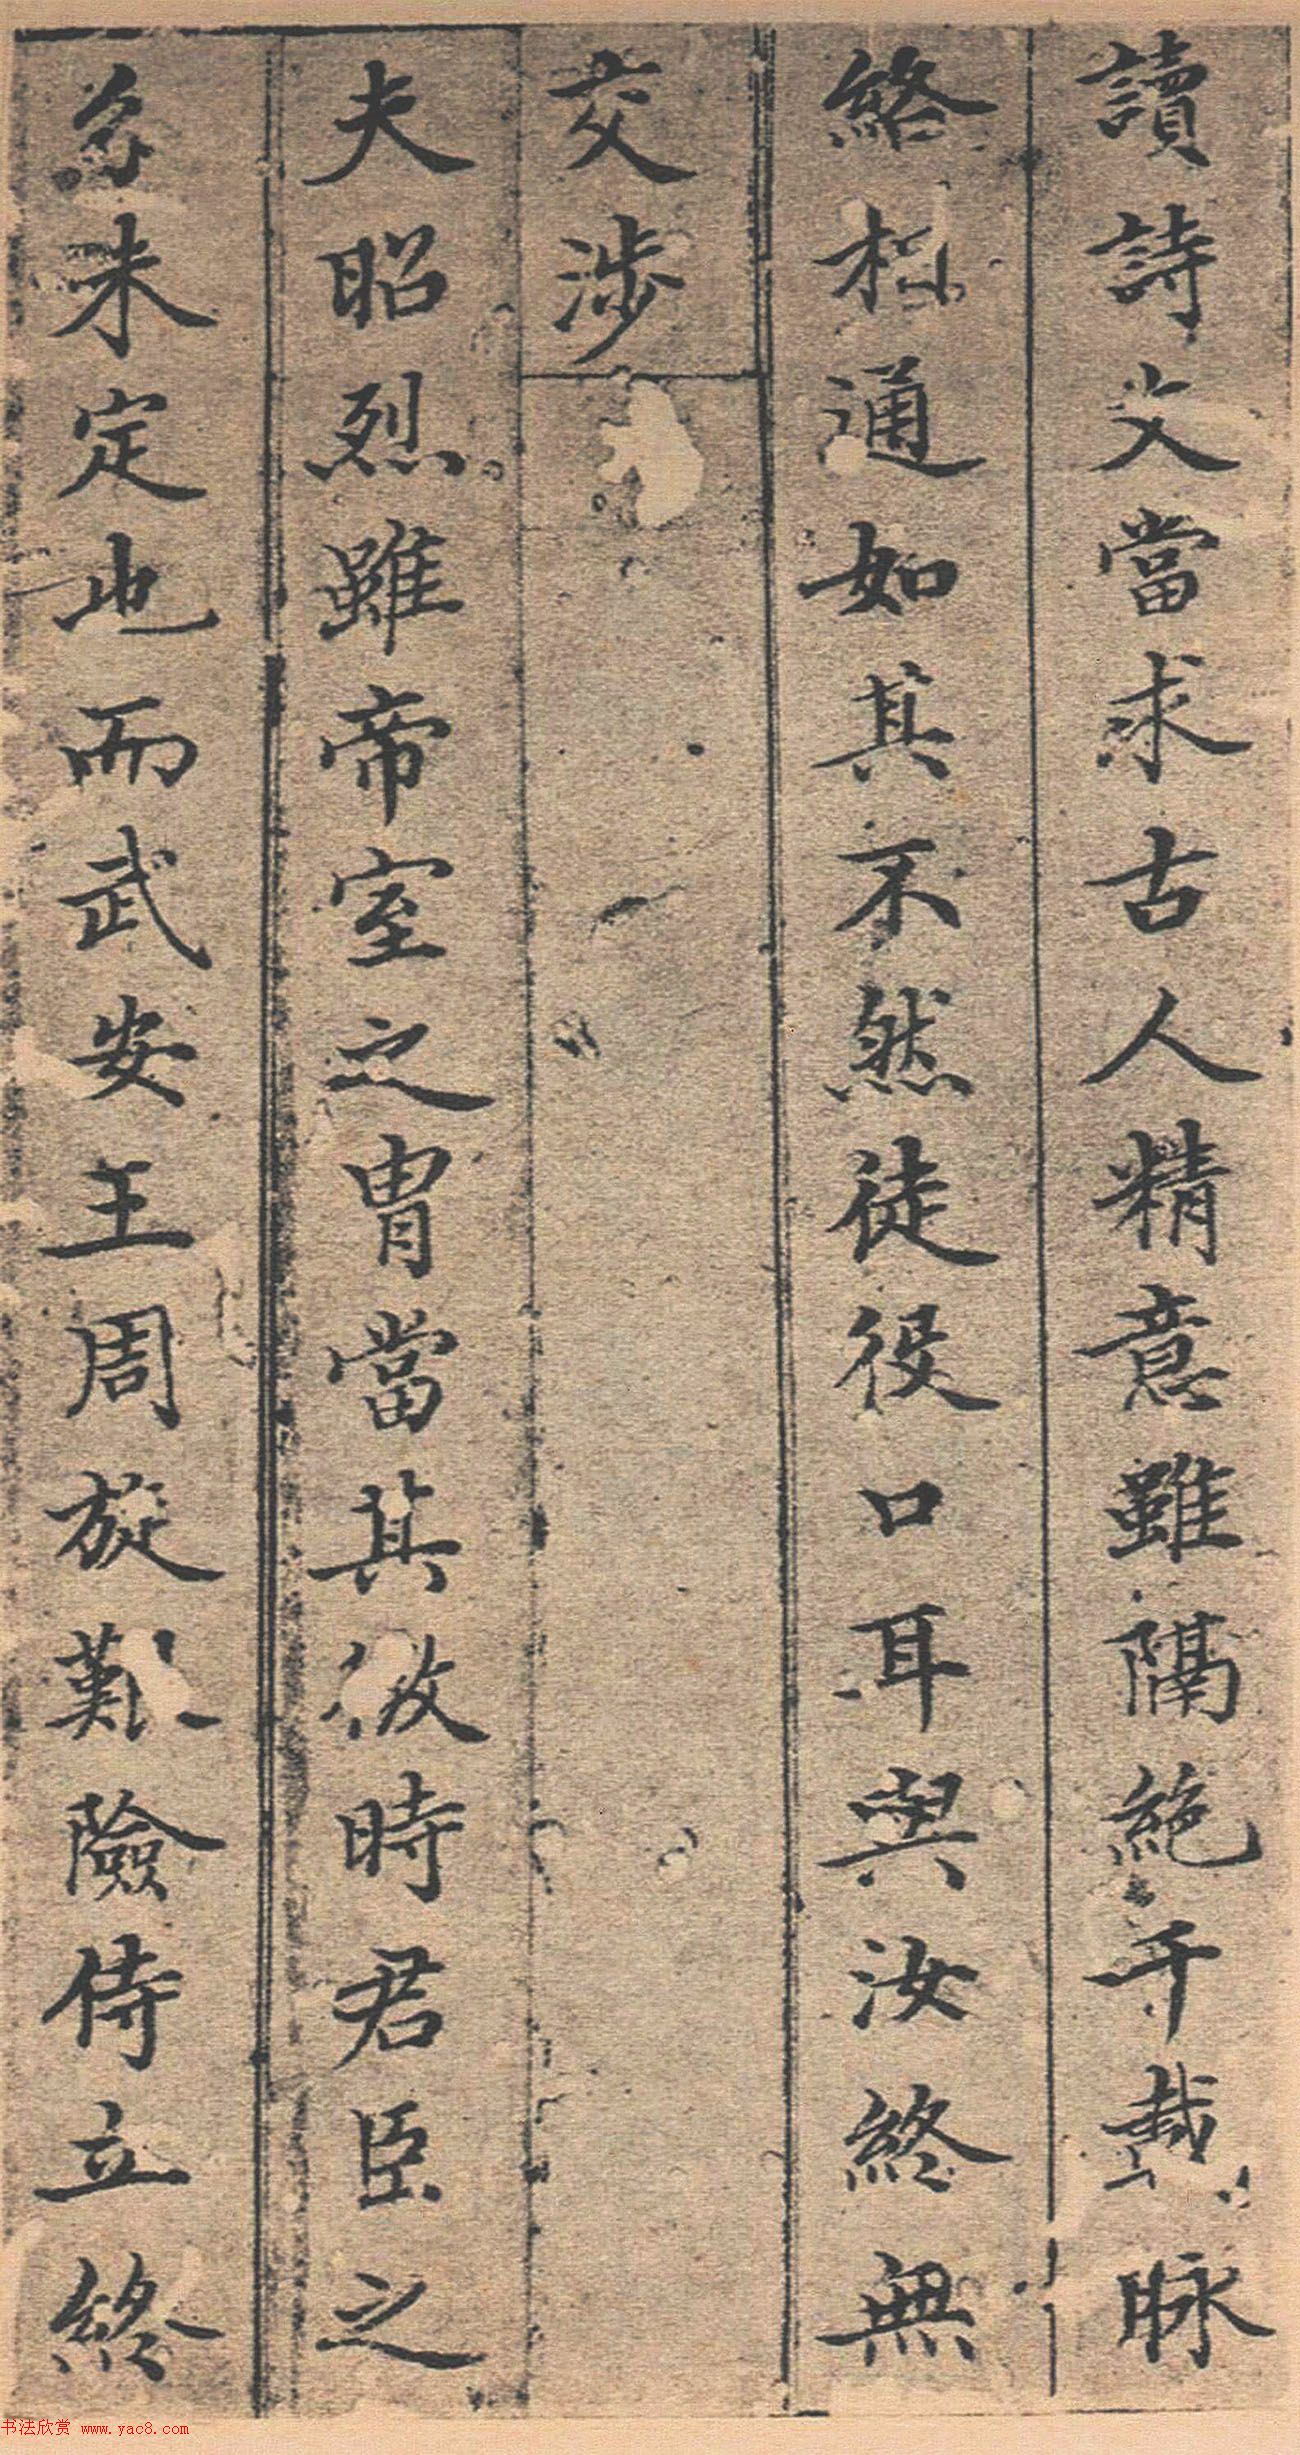 讀詩文當求古人精意雖隔絕千載脉
絡相通如其不然徒役口耳與汝終無
交涉
夫昭烈雖帝室之胄當其微時君臣之
名未定也而武安王周旋艱險侍立終
书法欣赏 www.yac8.com